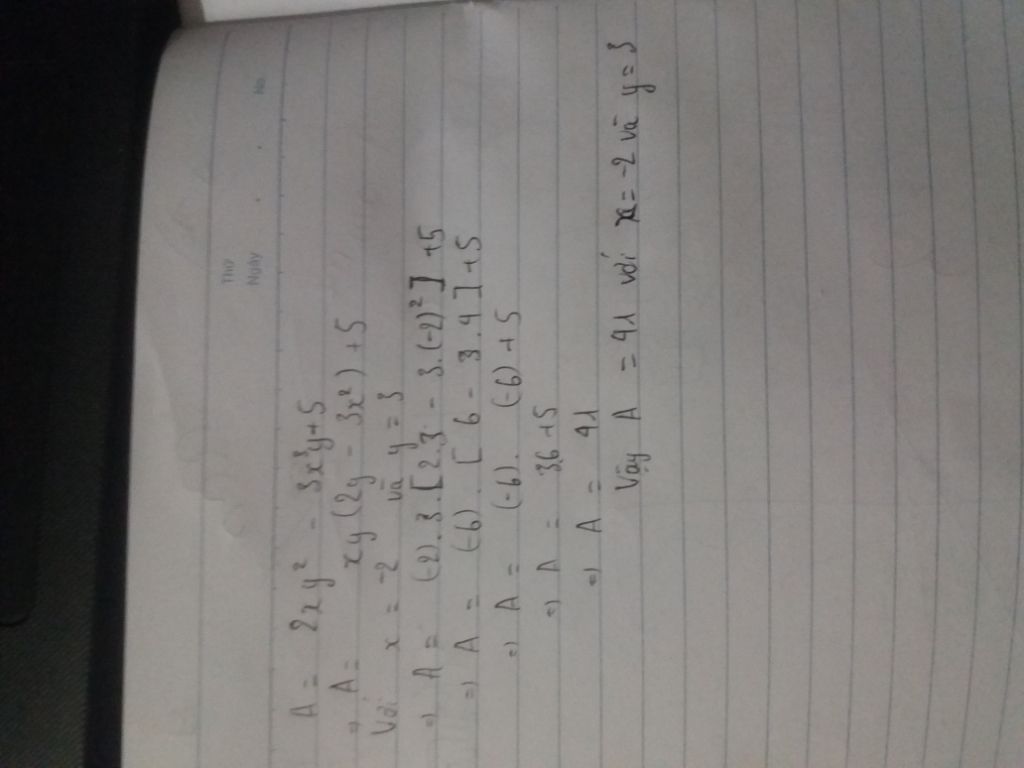 Thứ
Ngày
No.
A = 2xy² - 3x³y+5
⇒ A = xy (2y - 3x²) +5
Với x = -2 và y = 3
⇒ A = (-2).3.[2.3 - 3.(-2)²] +5
⇒ A = (-6).[6 - 3.4]+5
⇒ A = (-6).(-6)+5
⇒ A = 36+5
⇒ A = 41
Vậy A = 41 với x = -2 và y = 3